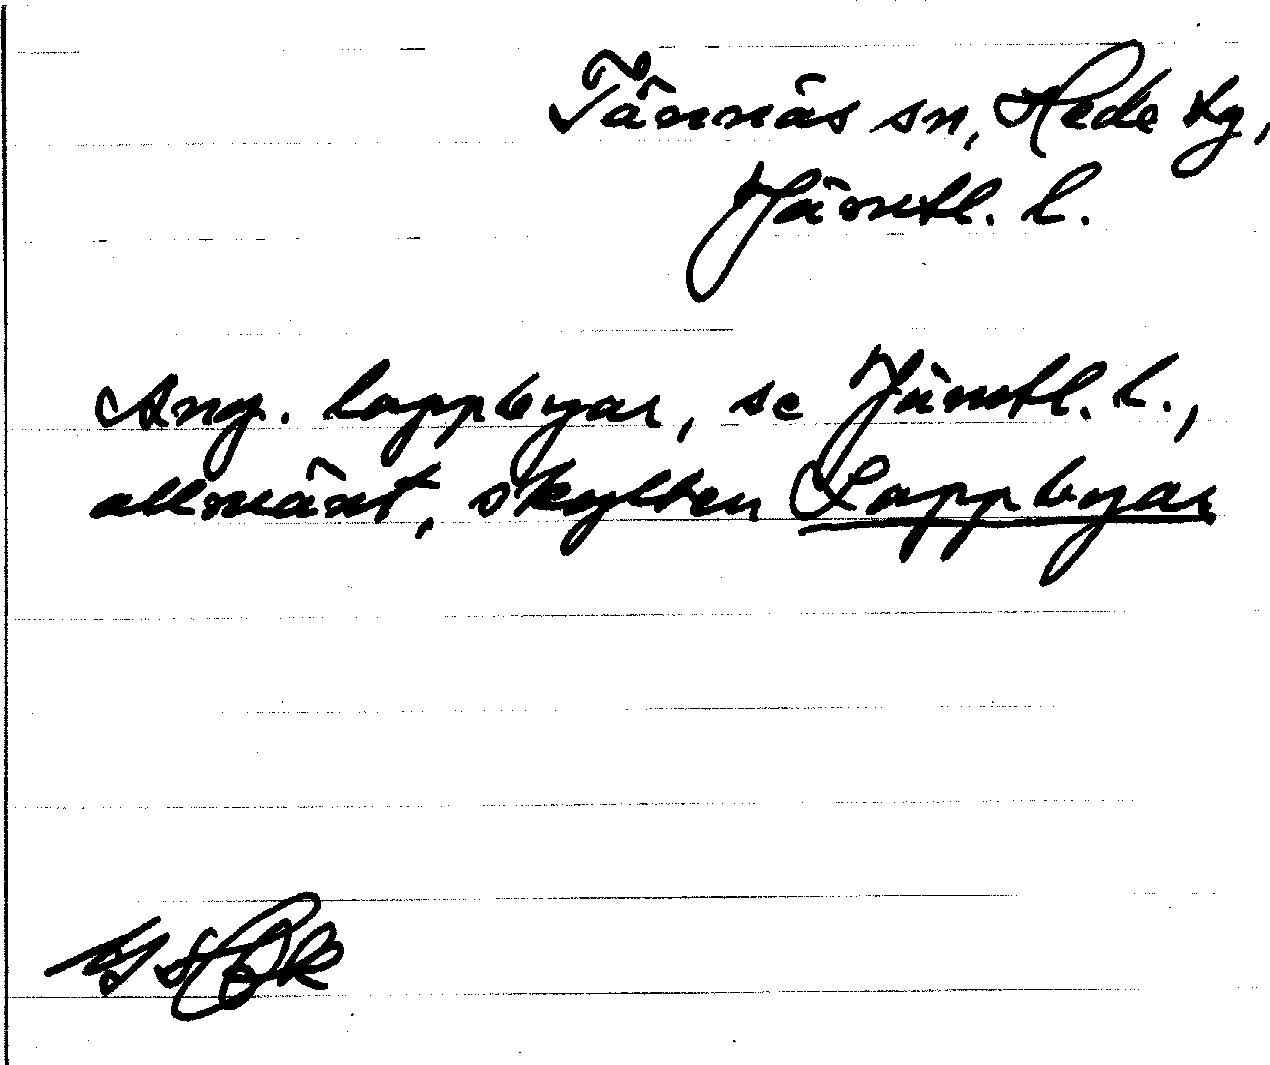 Tännäs sn, Hede tg,
Jämtl. l.
Ang. lappbyar, se Jämtl. l.,
allmänt, skylten Lappbyar